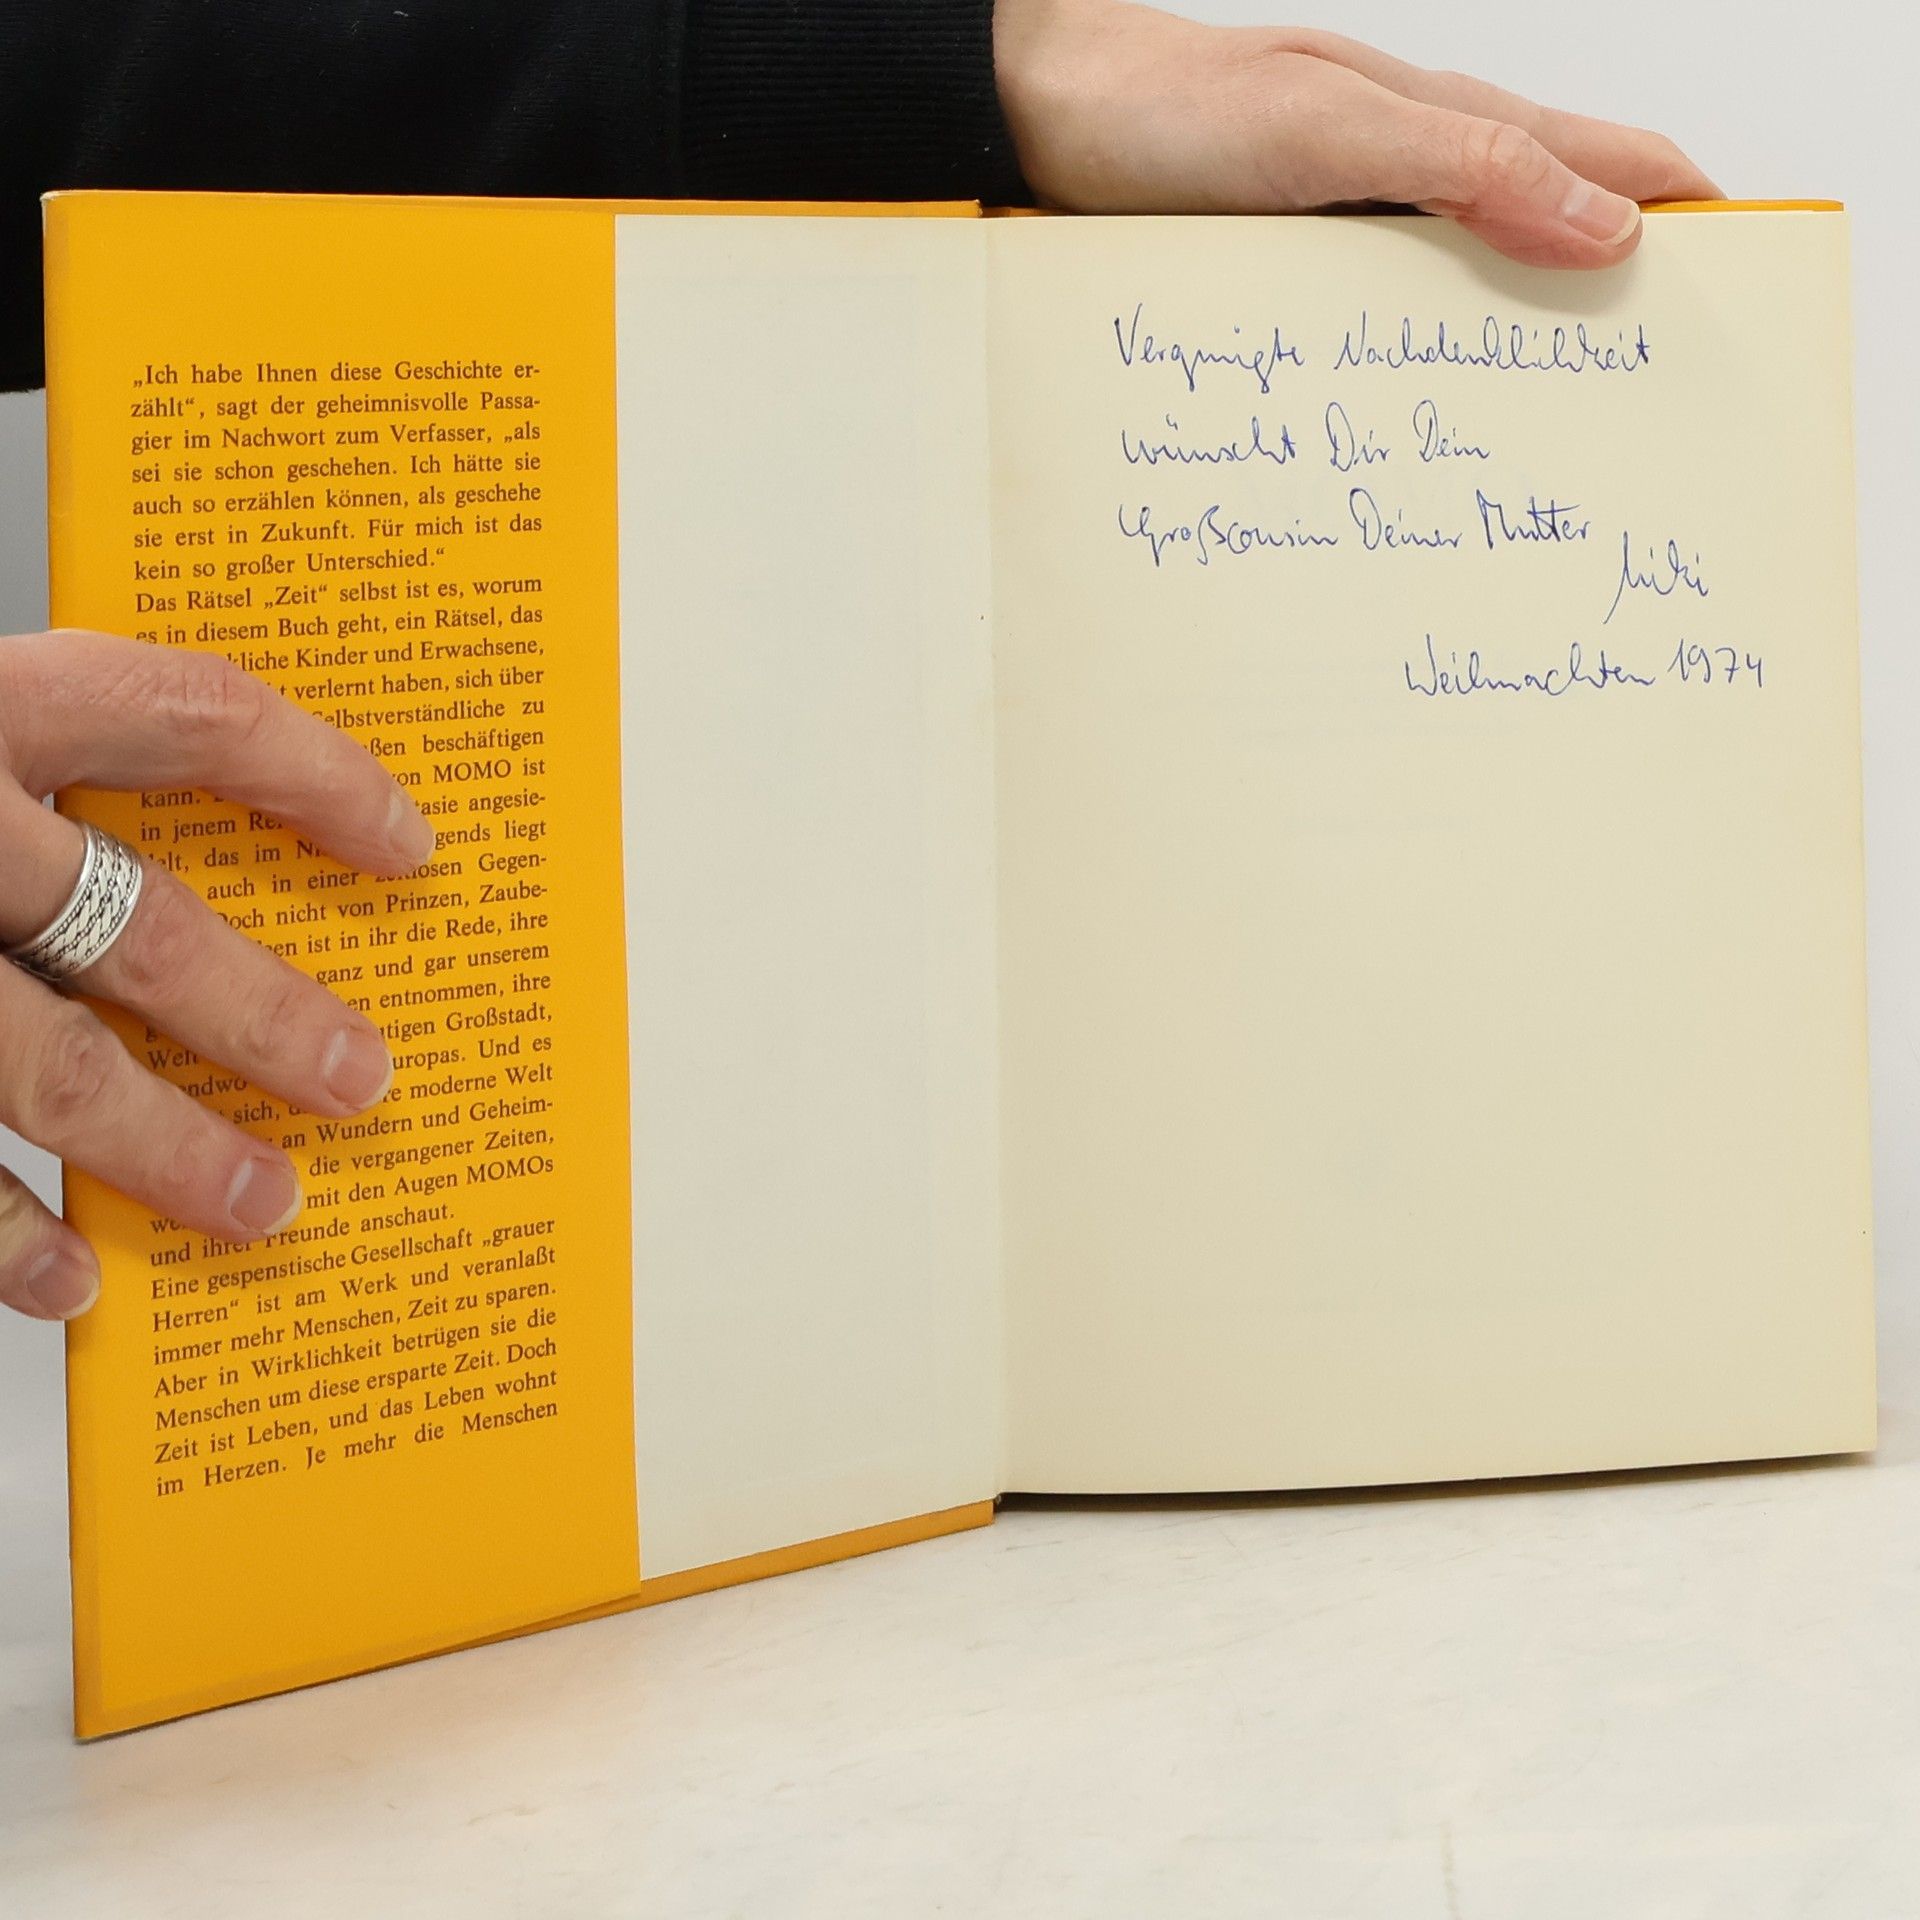 „Ich habe Ihnen diese Geschichte er-
zählt“, sagt der geheimnisvolle Passa-
gier im Nachwort zum Verfasser, „als
sei sie schon geschehen. Ich hätte sie
auch so erzählen können, als geschehe
sie erst in Zukunft. Für mich ist das
kein so großer Unterschied.“
Das Rätsel „Zeit“ selbst ist es, worum
es in diesem Buch geht, ein Rätsel, das
kliche Kinder und Erwachsene,
t verlernt haben, sich über
elbstverständliche zu
ßen beschäftigen
kann. on MOMO ist
in jenem asie angesie-
lt, das im gends liegt
auch in einer Gegen-
och nicht von Prinzen, Zaube-
en ist in ihr die Rede, ihre
ganz und gar unserem
en entnommen, ihre
tigen Großstadt,
Welt uropas. Und es
endwo e moderne Welt
sich, an Wundern und Geheim-
die vergangener Zeiten,
mit den Augen MOMOs
und ihrer Freunde anschaut.
Eine gespenstische Gesellschaft „grauer
Herren“ ist am Werk und veranlaßt
immer mehr Menschen, Zeit zu sparen.
Aber in Wirklichkeit betrügen sie die
Menschen um diese ersparte Zeit. Doch
Zeit ist Leben, und das Leben wohnt
im Herzen. Je mehr die Menschen
Vergnügte Nachdenklichkeit
wünscht Dir Dein
Großcousin Deiner Mutter
Weihnachten 1974